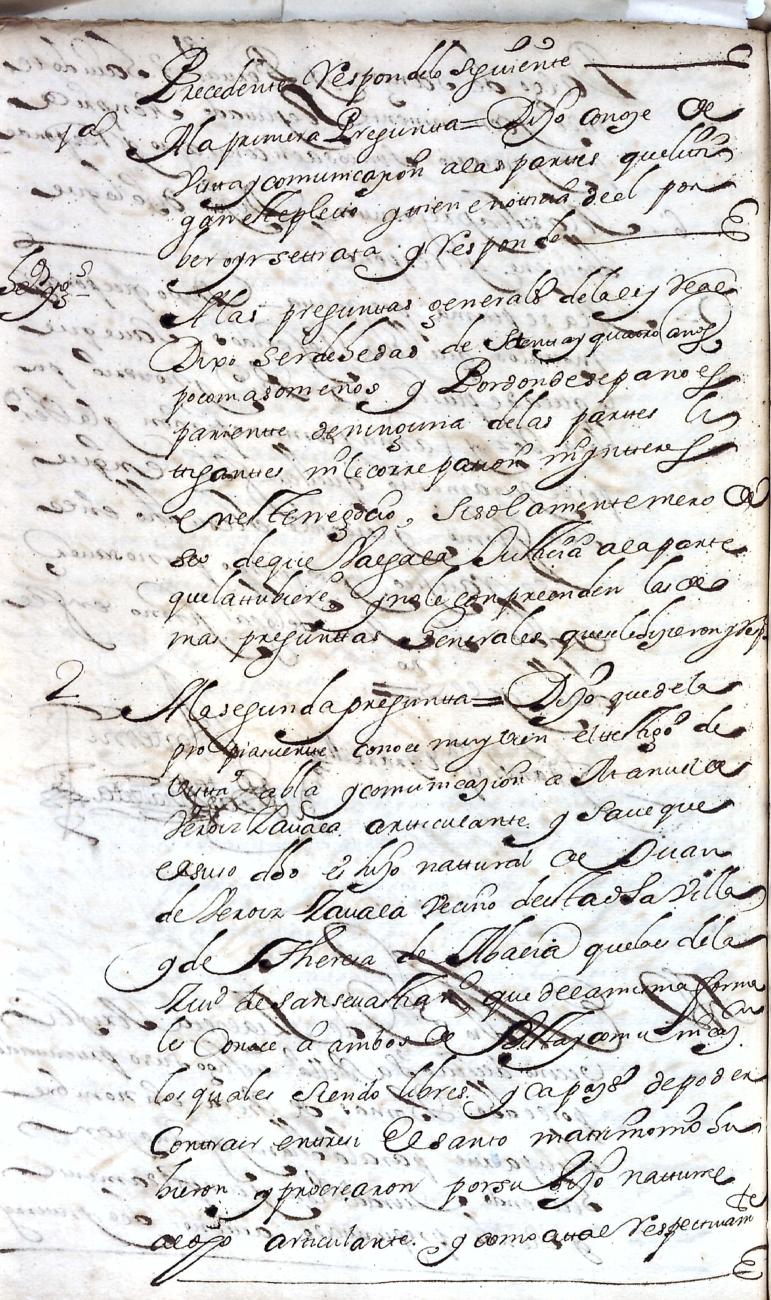 Precedente Respondio lo siguiente
1ª A la primera Pregunta = Dijo conoze de
vista y comunicazion a las partes que liti
gan este pleito y tiene noticia de el por
ber oyr se trata y Responde
A las preguntas generales de la ley Real
Dixo ser de hedad de setenta y quatro años
poco mas o menos y Por donde se pa no es
pariente de ninguna delas partes li
tigantes ni le corre passion ni ynteres
en este negocio, si solamente mero de
seo de que Valga la Justicia a la parte
que la tubiere, y no le compreenden las de
mas preguntas Generales que se le dizieron y Resp.
2 A la segunda pregunta = Dijo que de la
propia suerte conoce muy bien el testigo de
vista habla y comunicazion a Manuel de
Veroiz Zavala articulante y save que
el suso dho es hijo nattural de Juan
de Veroiz Zavala vecino de esta dha Villa
y de Theresa de Abaria que lo es de la
Ziud de san sevastian, que de la misma forma
les conoce a ambos de vista y comunicaz.on
los quales siendo libres y capazes de poder
Contraer entre si el santo matrimonio hu
bieron y procrearon por su hijo natture
al dho articulante y como a tal Respectivamte